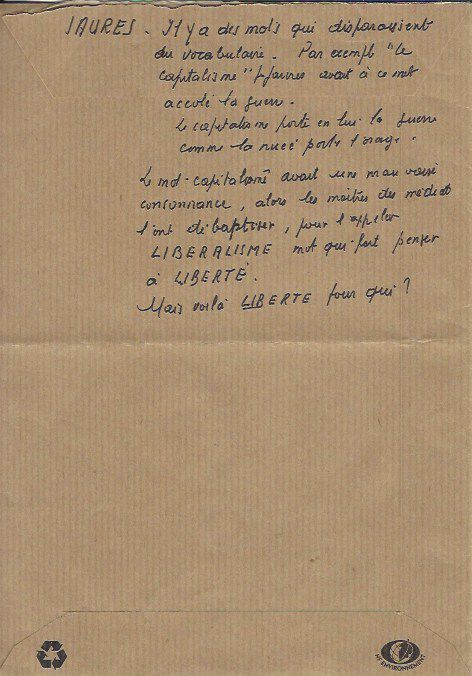 JAURES. Il y a des mots qui disparaissent
du vocabulaire. Par exempl "le
capitalisme" Jaures avait à ce mot
accolé la guerre.
Le capitalisme porte en lui la guerre
comme la nueé porte l'orage.
Le mot capitalisme avait une mauvaise
consonnance, alors les maîtres des médias
l'ont débaptiser, pour l'appeler
LIBERALISME mot qui fait penser
à LIBERTÉ.
Mais voilà LIBERTE pour qui ?
NF ENVIRONNEMENT